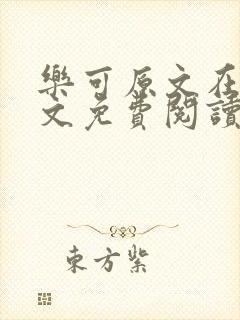 樂可原文在
文免費閱讀
東方紫